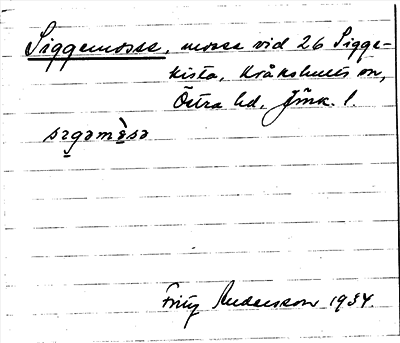 Siggemosse, mosse vid 26 Sigge-
kista, Kråkshults sn,
Östra hd, Jönk. l.
sagamåsa
Fritz Andersson 1934.